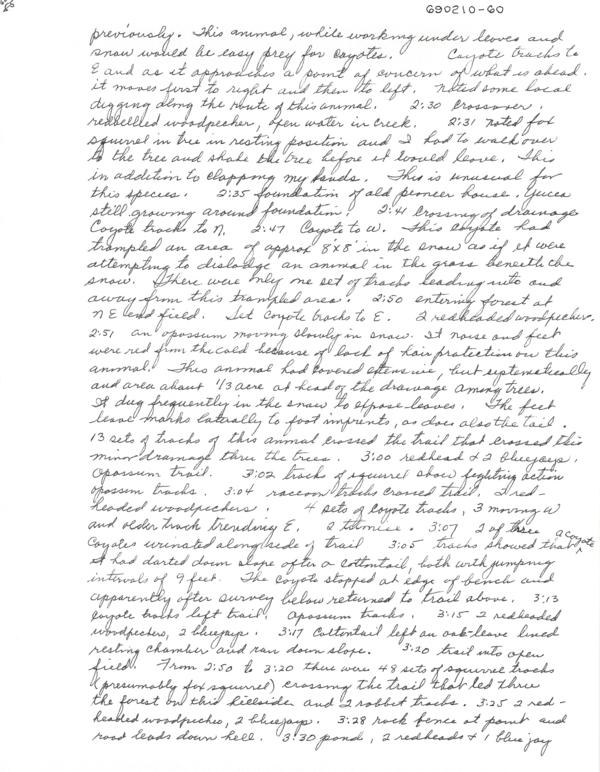 690210-60
previously. This animal, while working under leaves and
snow would be easy prey for coyotes. Coyote tracks to
E and as it approaches a point of concern of what is ahead.
it moves first to right and then to left. Noted some local
digging along the route of this animal. 2:30 Crossover.
redbellied woodpecker, open water in creek. 2:31 noted fox
squirrel in tree in resting position and I had to walk over
to the tree and shake the tree before it would leave. This
in addition to clapping my hands. This is unusual for
this species. 2:35 foundation of old pioneer house. Yucca
still growing around foundation. 2:41 Crossing of drainage
Coyote tracks to N. 2:47 Coyote to W. This coyote had
trampled an area of approx 8'x8' in the snow as if it were
attempting to dislodge an animal in the grass beneath the
snow. There were only one set of tracks leading into and
away from this trampled area. 2:50 entering forest at
N E end field. Set Coyote tracks to E. 2 redheaded woodpecker.
2:51 an opossum moving slowly in snow. It nose and feet
were red from the cold because of lack of hair protection on this
animal. This animal had covered extensive, but systematically
and area about 1/3 acre at head of the drainage among trees.
It dug frequently in the snow to expose leaves. The feet
leave marks laterally to foot imprints, as does also the tail.
13 sets of tracks of this animal crossed the trail that crossed this
minor drainage thru the trees. 3:00 redhead & 2 bluejays.
Opossum trail. 3:02 tracks of squirrel show fighting action
opossum tracks. 3:04 raccoon tracks crossed trail. 2 red-
headed woodpeckers. 4 sets of coyote tracks, 3 moving W
and older track trending E. 2 titmice. 3:07 2 of three
Coyotes urinated along side of trail 3:05 tracks showed that a Coyote
it had darted down slope after a cottontail, both with jumping
intervals of 9 feet. The coyote stopped at edge of bench and
apparently after survey below returned to trail above. 3:13
coyote tracks left trail. Opossum tracks. 3:15 2 redheaded
woodpeckers, 2 bluejays. 3:17 Cottontail left an oak-leave lined
resting chamber and ran down slope. 3:20 trail into open
field. From 2:50 to 3:20 there were 48 sets of squirrel tracks
(presumably fox squirrel) crossing the trail that led thru
the forest on this hillside and 2 rabbit tracks. 3:25 2 red-
headed woodpecker, 2 bluejays. 3:28 rock fence at point and
road leads down hill. 3:30 pond, 2 redheads & 1 blue jay